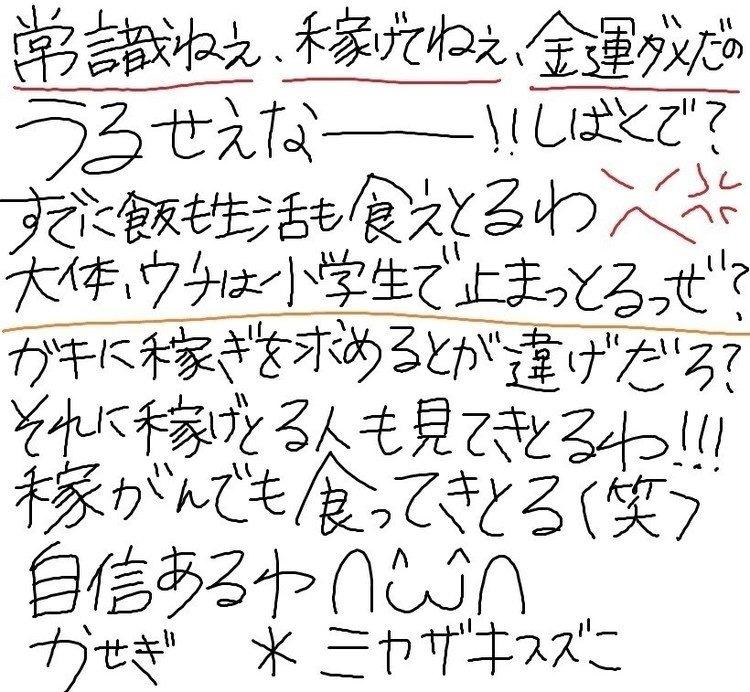 常識ねぇ、稼げてねぇ、金運ダメだの
うるせえなー!!しばくで?
すでに飯も生活も食えとるわ
大体、ウチは小学生で止まっとるっぜ?
ガキに稼ぎを求めるとが違げだろ?
それに稼げとる人も見てきとるわ!!!
稼がんでも食ってきとる(笑)
自信あるわ∩^ω^∩
かせぎ *ミヤザキスズこ